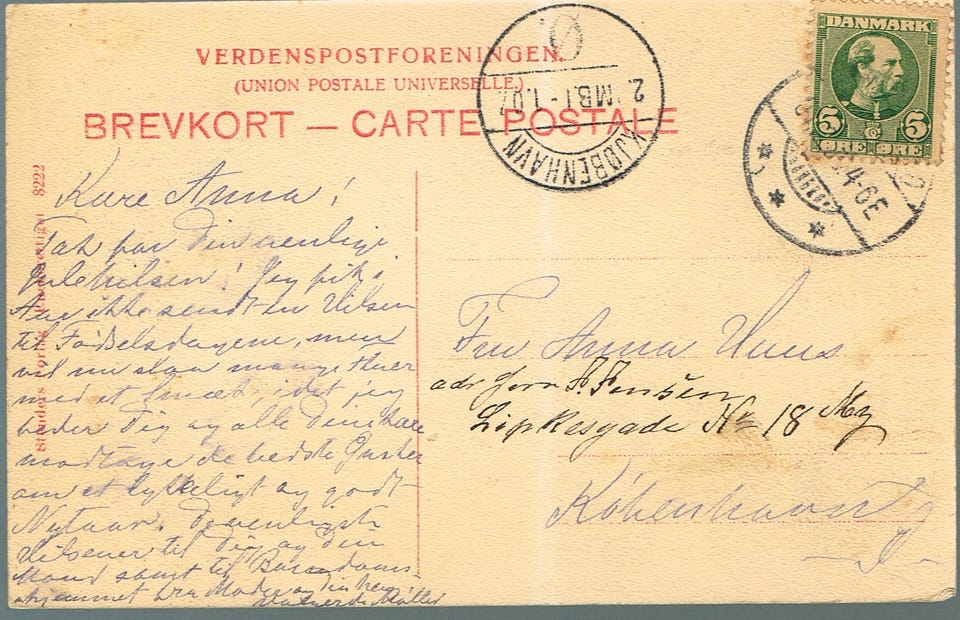 VERDENSPOSTFORENINGEN.
(UNION POSTALE UNIVERSELLE.)
BREVKORT — CARTE POSTALE
DANMARK
5 5
ØRE ØRE
Ø
2. OMB. 1-1.07
KJØBENHAVN
4-6E
Stenders Forlag 8222
Kære Anna!
Tak for Din venlige
Julehilsen! Jeg fik i
Aar ikke sendt en Hilsen
til Fødselsdagene, men
vil nu slaa mange Fluer
med et Smæk, idet jeg
beder Dig og alle Dine kære
modtage de bedste Ønsker
om et lykkeligt og godt
Nytaar. De venligste
Hilsener til Dig og Din
Mand samt til Barndoms-
hjemmet fra Moder og Din hen.
Møller
Fru Anna
adr Herr P. Jensen
Lipkesgade No 18
København Ø